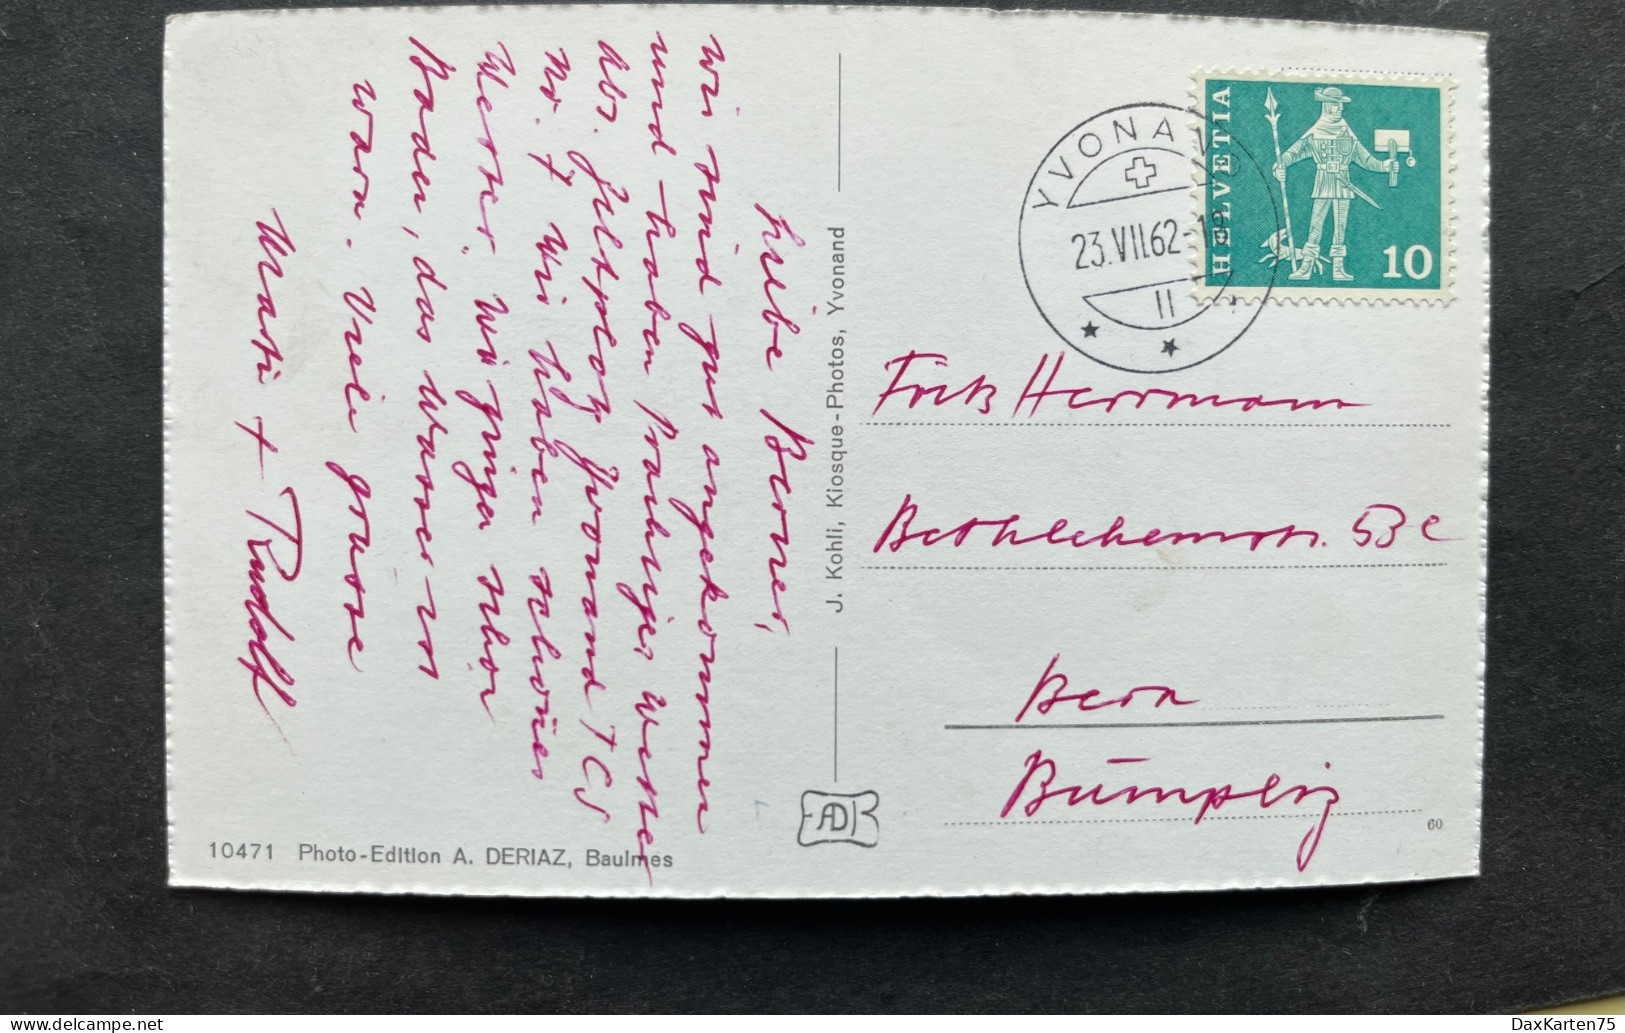 Liebe Berner,
wir sind gut angekommen
und haben prächtiges Wetter
Adr. Zeltplatz Yvonand TCS
No. 7 Wir haben schönes
Wetter. Wir gingen schon
Baden, das Wasser ist
warm. Viele grüsse
+ Rudolf
J. Kohli, Kiosque-Photos, Yvonand
10471 Photo-Edition A. DERIAZ, Baulmes
YVONAND
23.VII.62-18
II
HELVETIA
10
Fritz Herrmann
Bethlehemstr. 53 c
Bern
Bümpliz
60
DaxKarten75